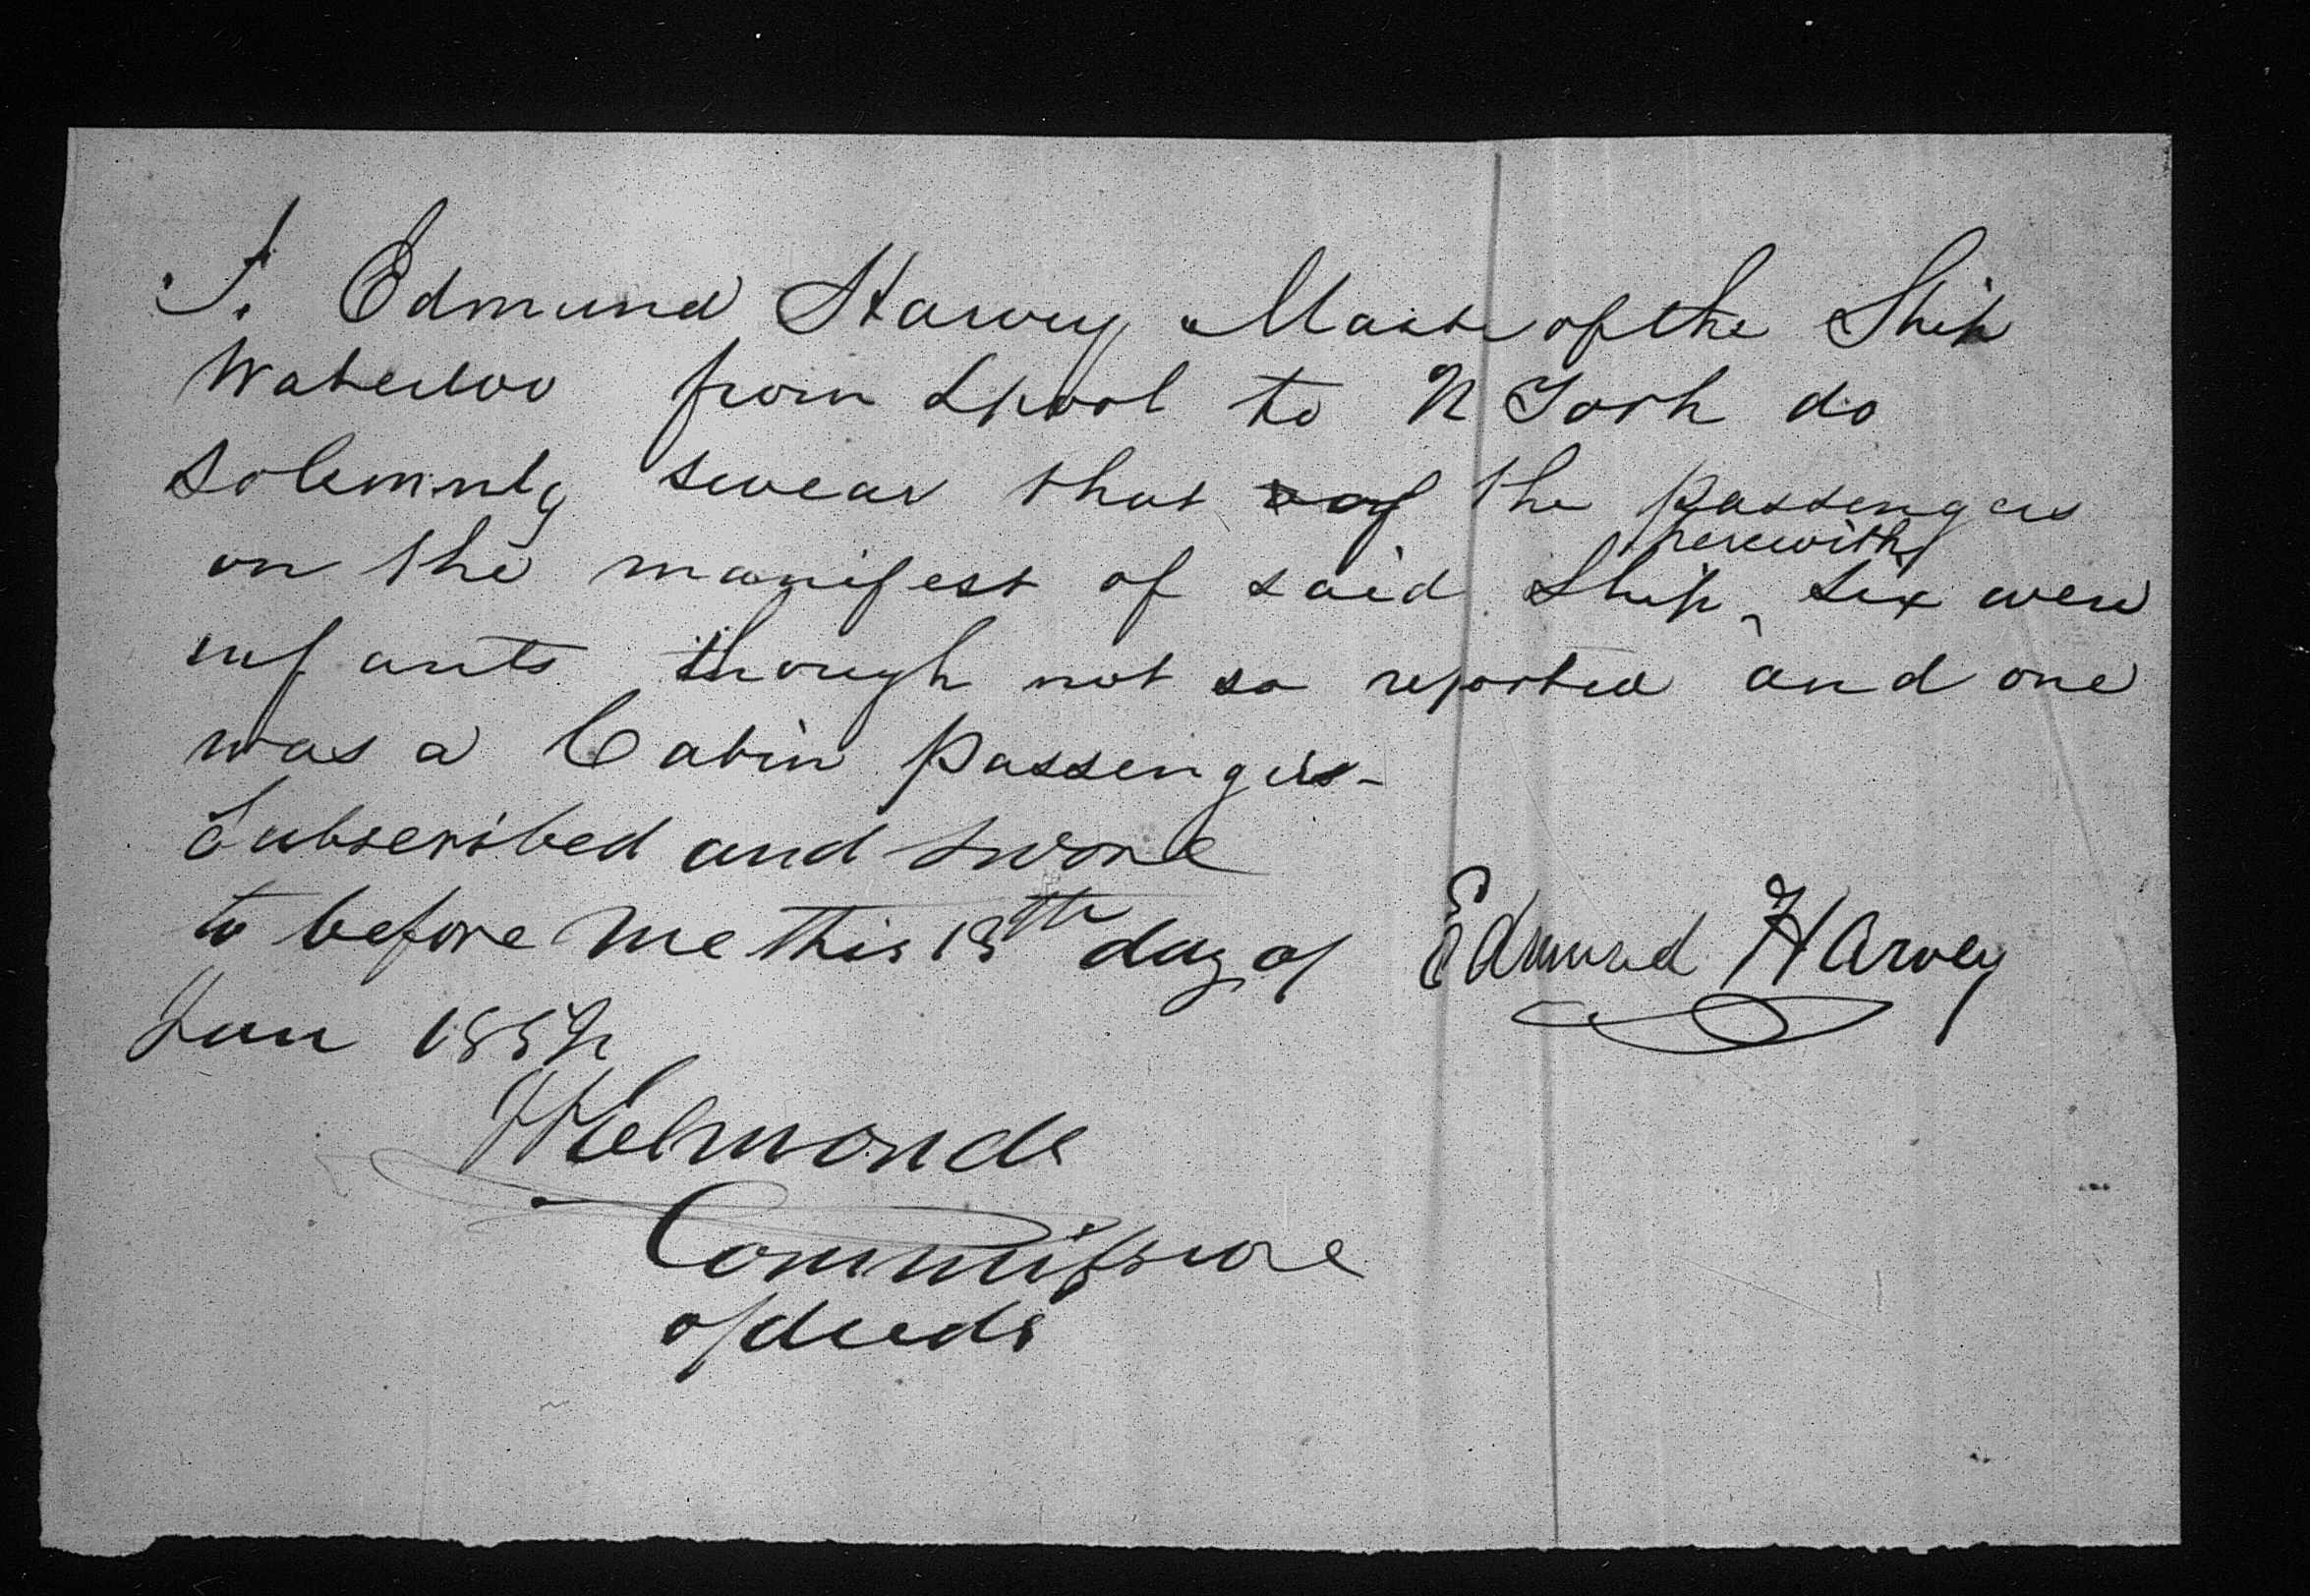 I. Edmund Harvey Master of the Ship
Waterloo from Lpool to N York do
solemnly swear that of the passengers
herewith
on the manifest of said Ship ‸ six were
infants though not so reported and one
was a Cabin passenger-
Subscribed and swore
to before me this 13th day of
Jan 1854
Edmund Harvey
Commissioner
of deeds